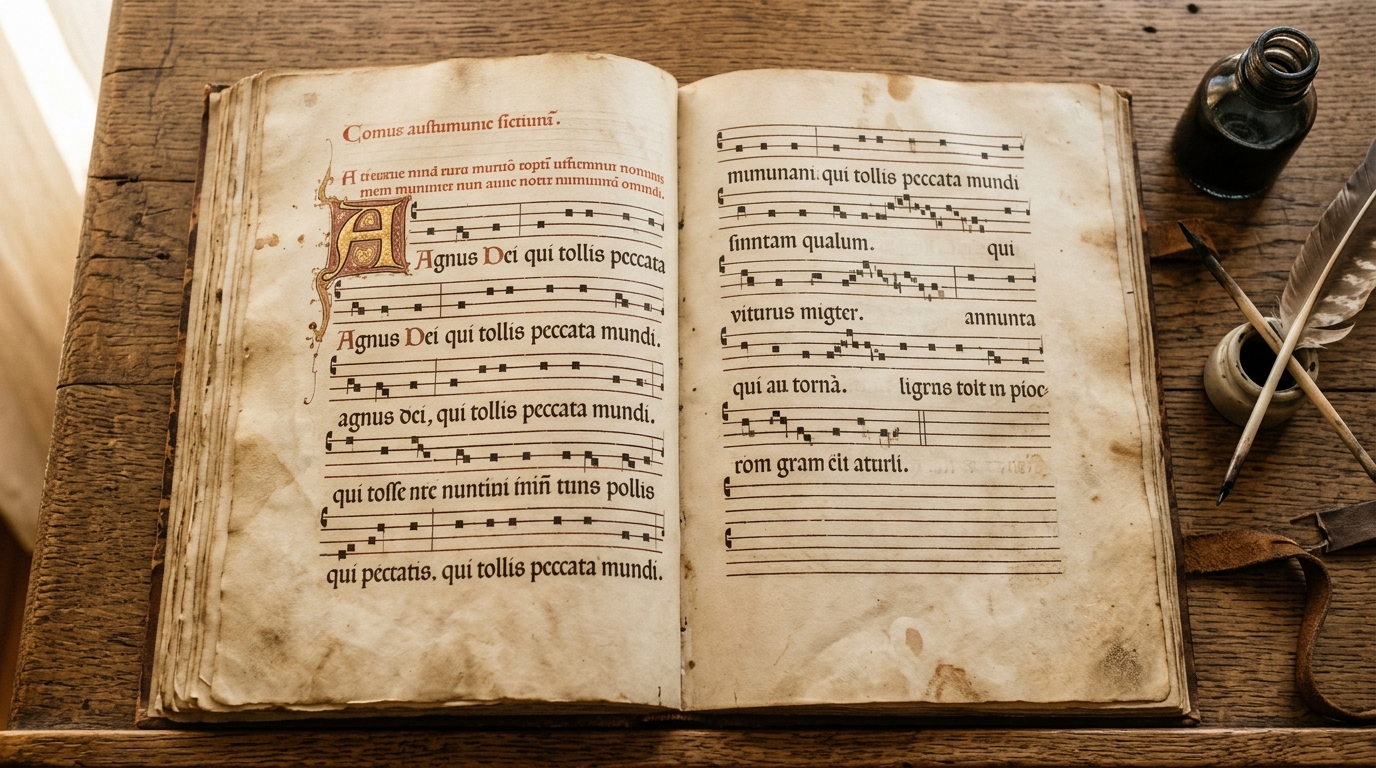 Comus austumunic sictiunã.
A treuenue minã rura muruõ roptĩ usficmnur nomnis
mem munimter nun aunc notur nimumnã omindi.
A
Agnus Dei qui tollis peccata
Agnus Dei qui tollis peccata mundi.
agnus dei, qui tollis peccata mundi.
qui tosse nte nuntini ininñ tuns pollis
qui pectatis, qui tollis peccata mundi.
mumunani. qui tollis peccata mundi
sinntam qualum. qui
viturus migter. annunta
qui au tornà. ligrns toit in pioc
rom gram cit aturli.